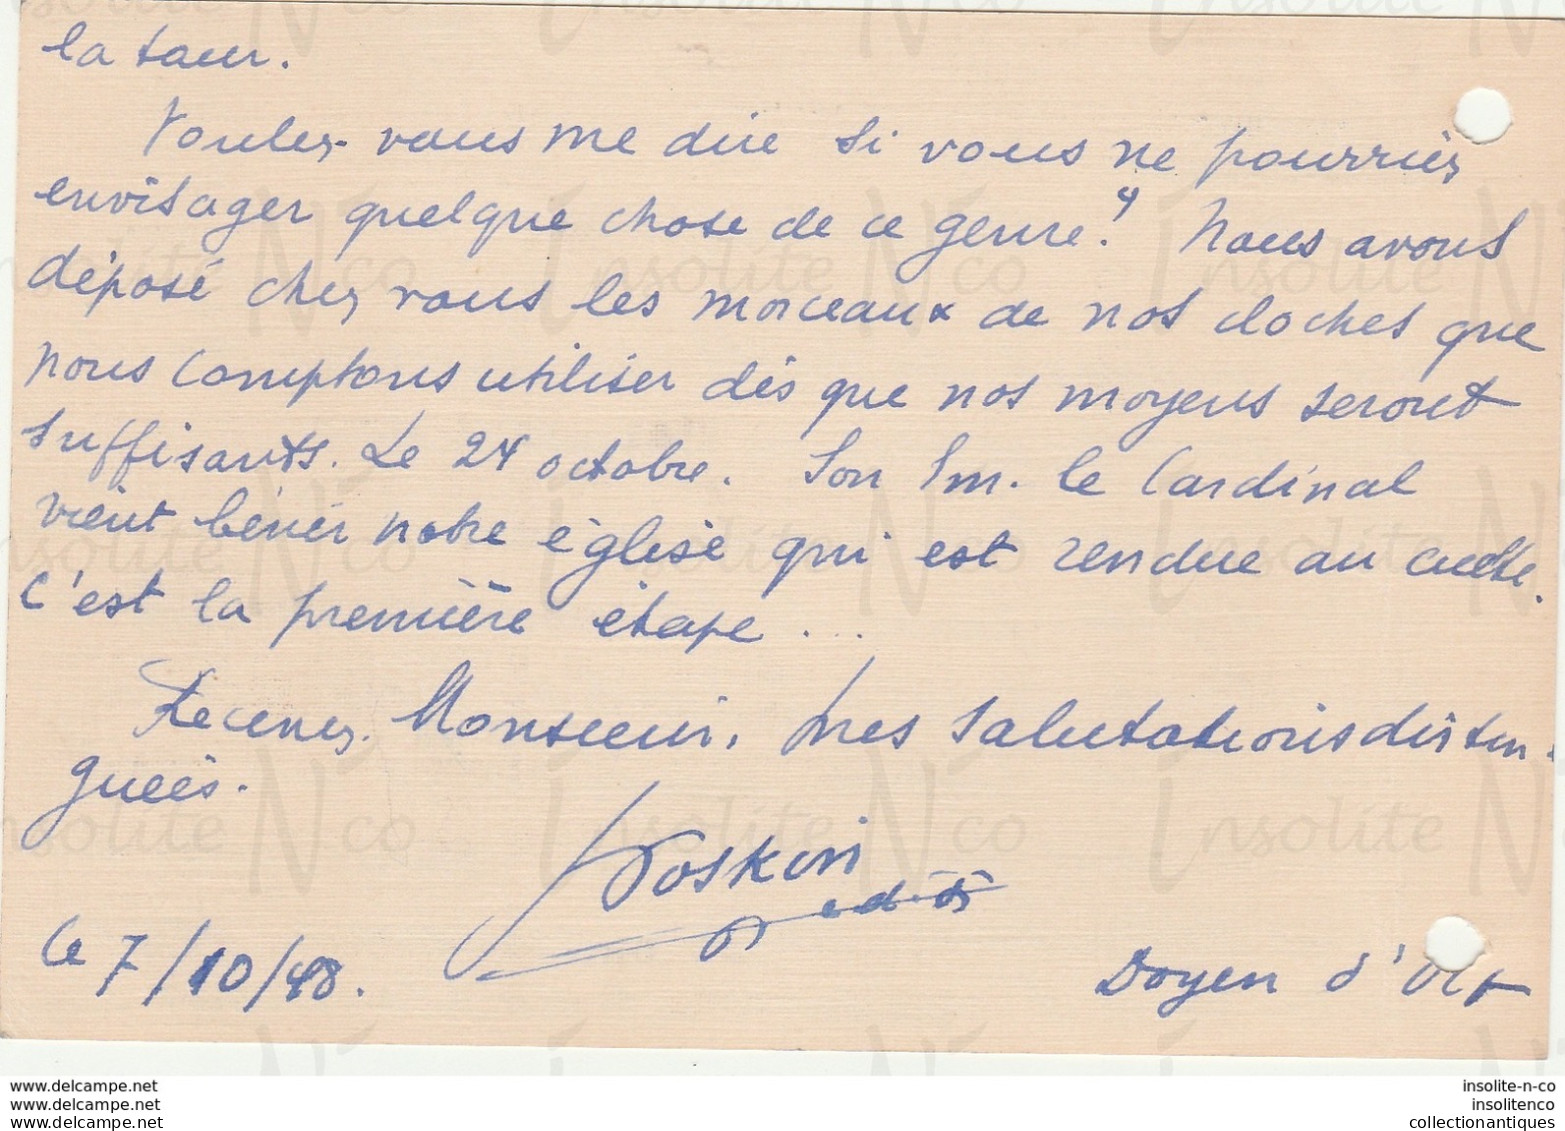 la tour.
Voulez-vous me dire si vous ne pourriez
envisager quelque chose de ce genre? Nous avons
déposé chez vous les morceaux de nos cloches que
nous comptons utiliser dès que nos moyens seront
suffisants. Le 24 octobre. Son Em. le Cardinal
vient bénir notre église qui est rendue au culte.
C'est la première étape...
Recevez, Monsieur, mes salutations distin-
guées.
le 7/10/48.
Doyen d'
www.delcampe.net
www.delcampe.net
www.delcampe.net
insolite-n-co
insolitenco
collectionantiques